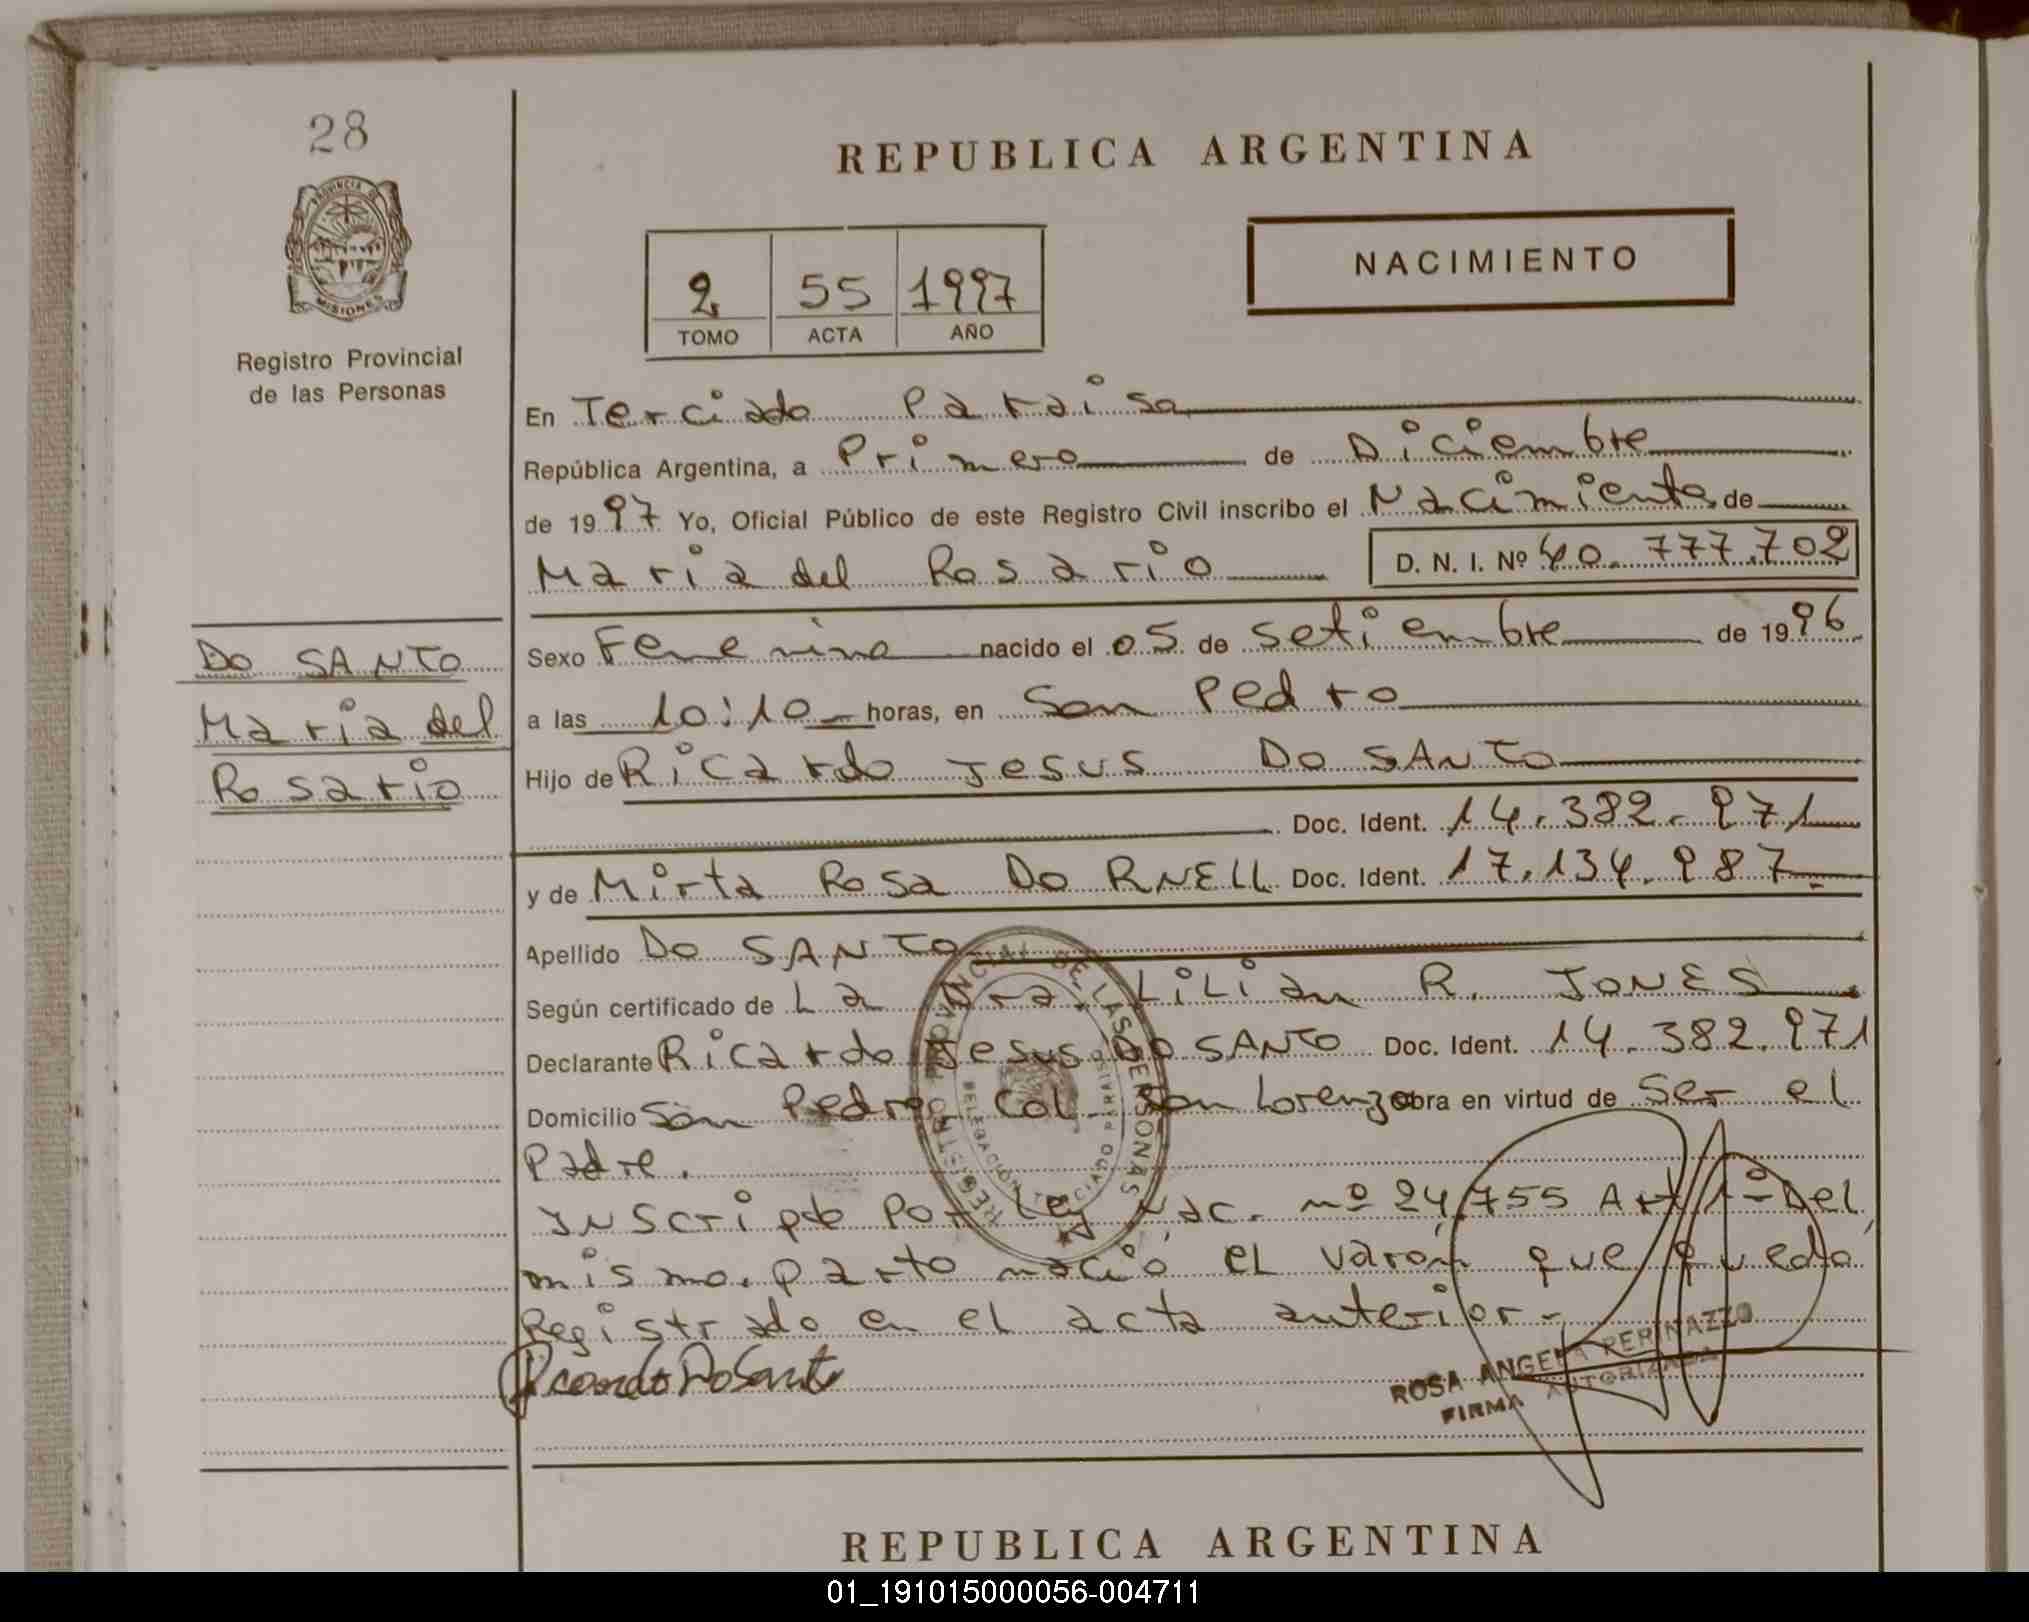 28
PROVINCIA DE
MISIONES
Registro Provincial
de las Personas
REPUBLICA ARGENTINA
2 55 1997
TOMO ACTA AÑO
NACIMIENTO
En Terciado Paraiso
República Argentina, a Primero de Diciembre
de 1997 Yo, Oficial Público de este Registro Civil inscribo el Nacimiento de
Maria del Rosario D. N. I. Nº 40.777.702
DO SANTO
Maria del
Rosario
Sexo Femenino nacido el 05 de Setiembre de 1996
a las 10:10 horas, en San Pedro
Hijo de Ricardo Jesus DO SANTO
Doc. Ident. 14.382.971
y de Mirta Rosa DO RNELL Doc. Ident. 17.134.987
Apellido DO SANTO
Según certificado de La Dra. LiLian R. JONES
Declarante Ricardo Jesus DO SANTO Doc. Ident. 14.382.971
Domicilio San Pedro Col San Lorenzo obra en virtud de Ser el
Padre.
Inscripto Por Ley Nac. nº 24.755 Art 1º Del
mismo parto nació el varón que quedo
Registrado en el acta anterior -
Ricardo Do Santo
REGISTRO PROVINCIAL DE LAS PERSONAS
DELEGACIÓN TERCIADO PARAISO
ROSA ANGELA PERINAZZO
FIRMA AUTORIZADA
REPUBLICA ARGENTINA
01_191015000056-004711